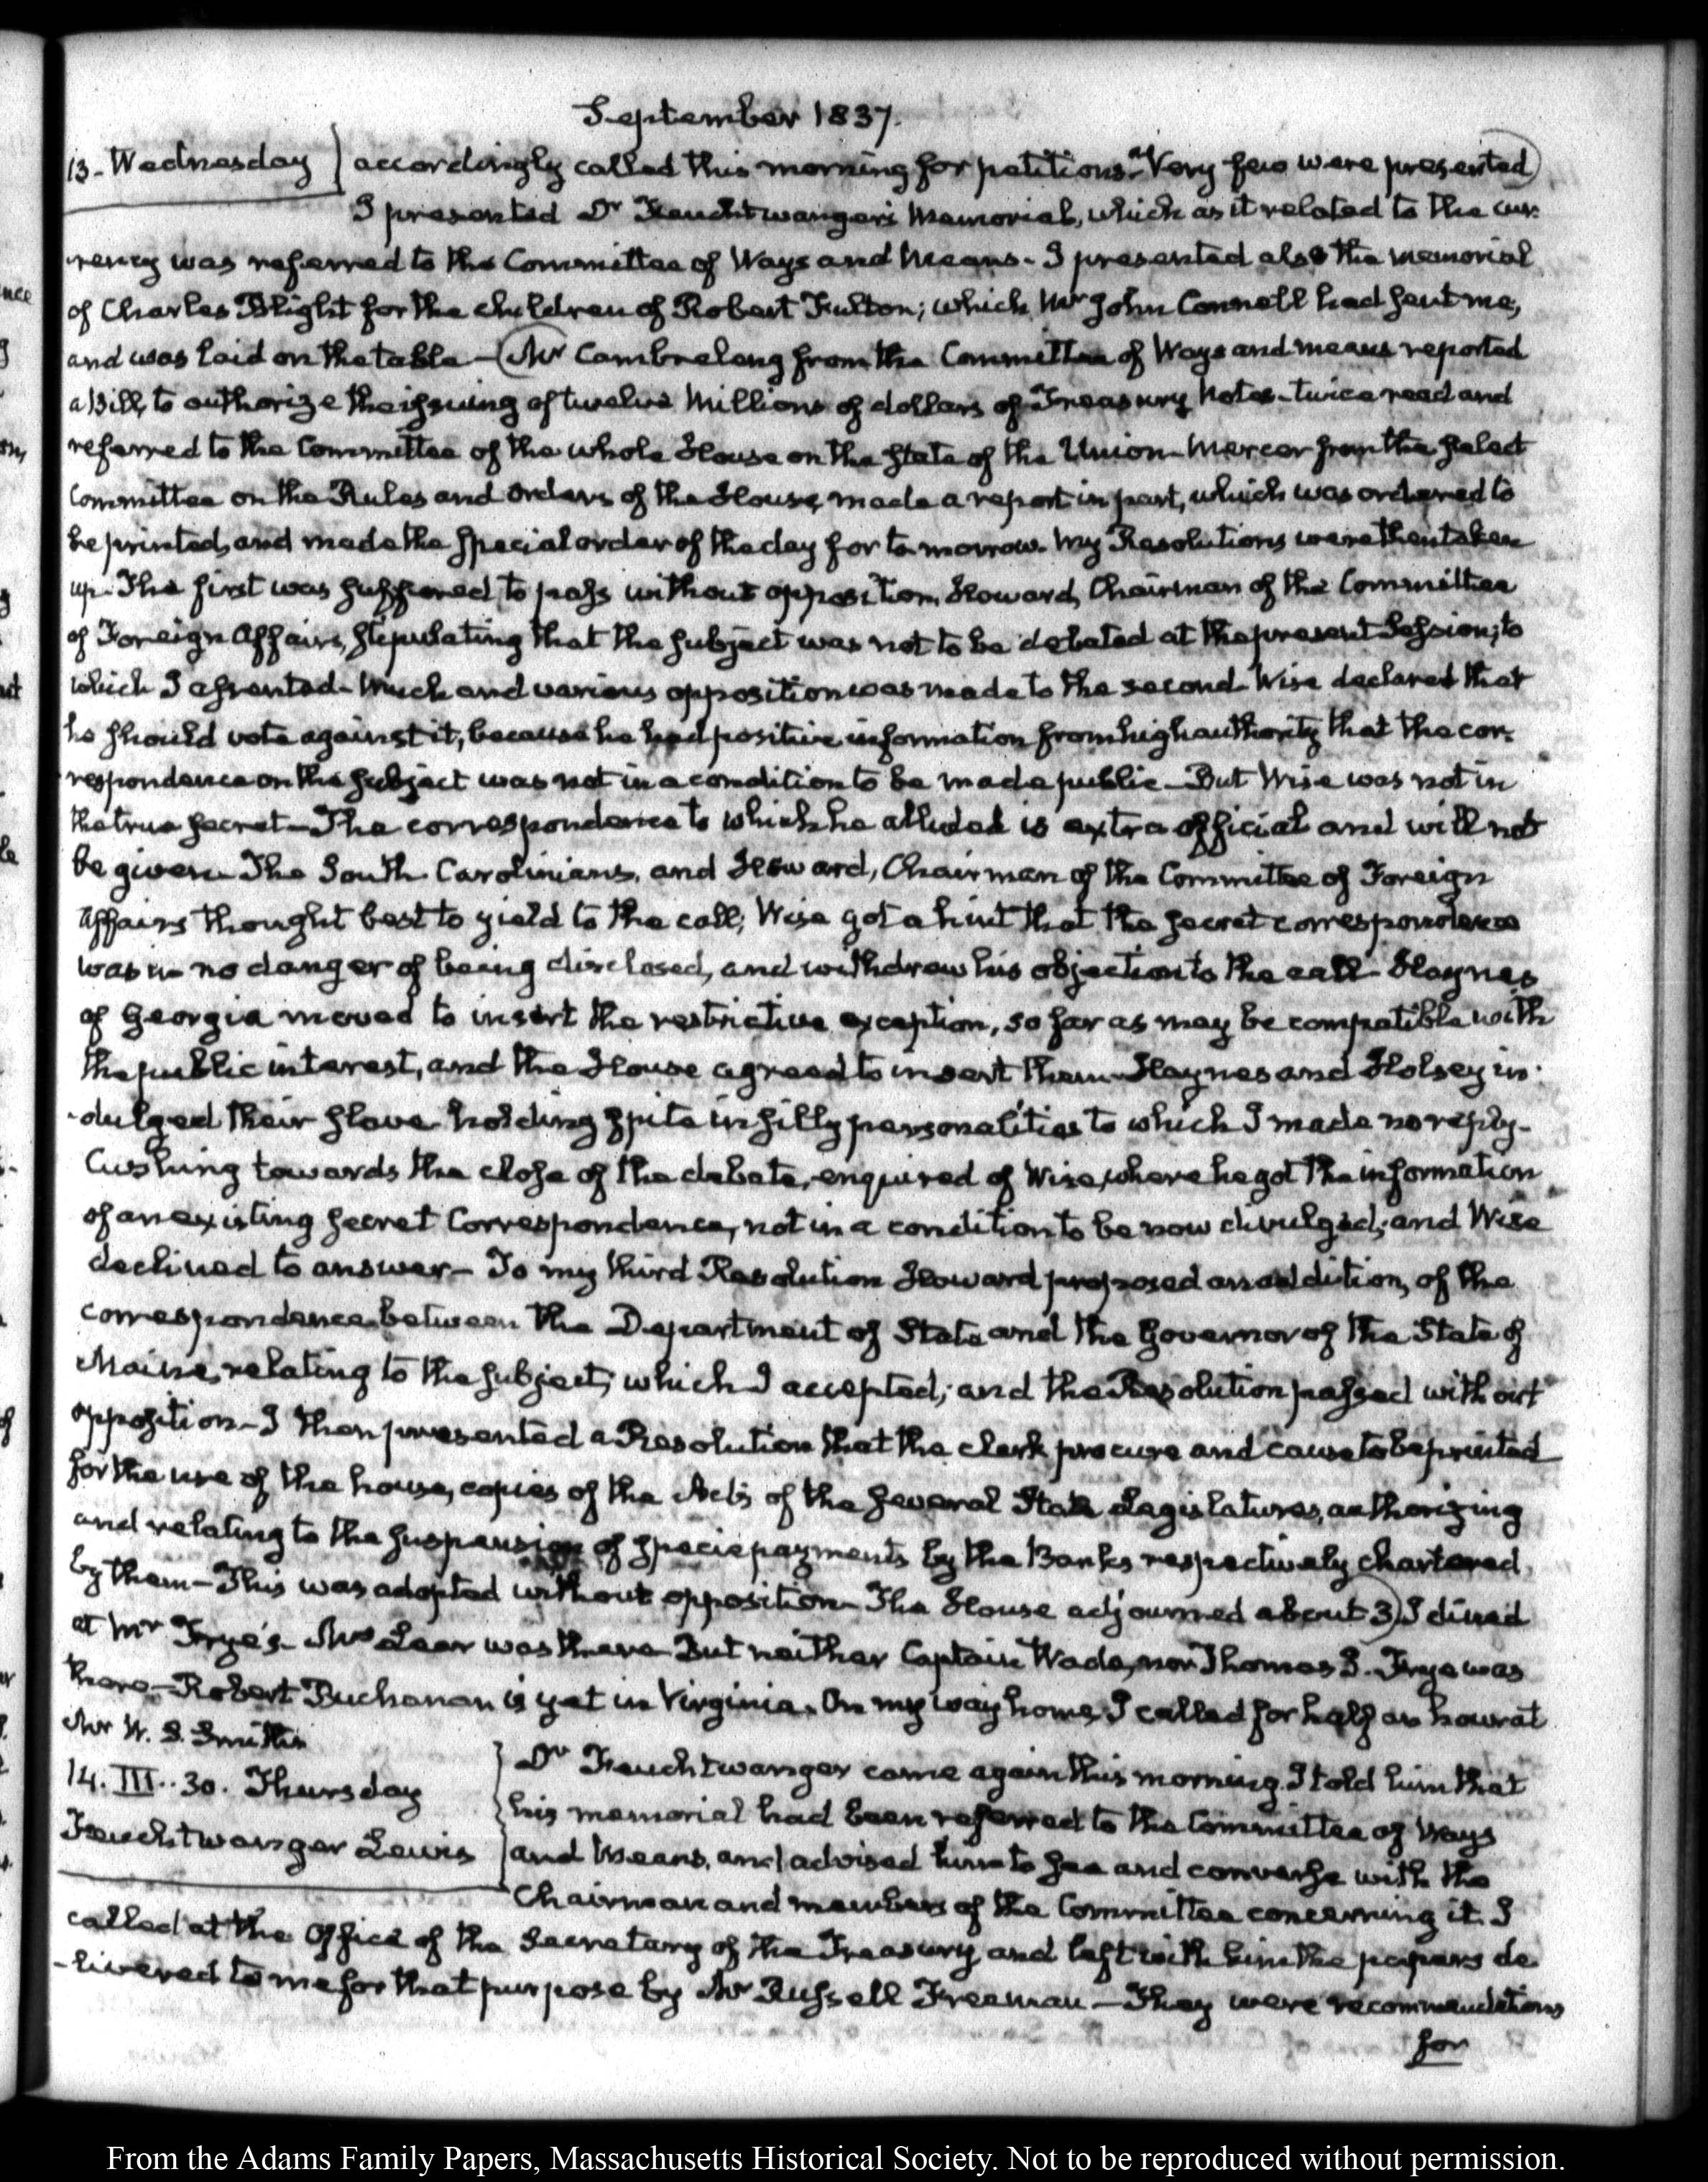 September 1837.
13. Wednesday } accordingly called this morning for petitions. Very few were presented
I presented Dr Feuchtwanger's Memorial, which as it related to the cur-
rency was referred to the Committee of Ways and Means. I presented also the memorial
of Charles Blight for the children of Robert Fulton; which Mr John Connell had sent me,
and was laid on the table — Mr Cambreleng from the Committee of Ways and means reported
a Bill, to authorize the issuing of twelve Millions of dollars of Treasury Notes - twice read and
referred to the Committee of the whole House on the state of the Union - Mercer from the select
Committee on the Rules and Orders of the House, made a report in part, which was ordered to
be printed, and made the special order of the day for to-morrow. My Resolutions were then taken
up. The first was suffered to pass without opposition, Howard, Chairman of the Committee
of Foreign Affairs, stipulating that the subject was not to be debated at the present Session; to
which I assented - Much and various opposition was made to the second - Wise declared that
he should vote against it, because he had positive information from high authority that the cor-
respondence on the subject was not in a condition to be made public — But Wise was not in
the true secret — The correspondence to which he alluded is extra official and will not
be given - The South Carolinians, and Howard, Chairman of the Committee of Foreign
Affairs thought best to yield to the call; Wise got a hint that the secret correspondence
was in no danger of being disclosed, and withdrew his objection to the call - Haynes
of Georgia moved to insert the restrictive exception, so far as may be compatible with
the public interest, and the House agreed to insert them - Haynes and Holsey in-
-dulged their slave-holding spite in silly personalities to which I made no reply -
Cushing towards the close of the debate, enquired of Wise, where he got the information
of an existing secret Correspondence, not in a condition to be now divulged; and Wise
declined to answer - To my third Resolution Howard proposed an addition, of the
correspondence between the Department of State and the Governor of the State of
Maine, relating to the subject; which I accepted; and the Resolution passed without
opposition - I then presented a Resolution that the clerk procure and cause to be printed
for the use of the house, copies of the Acts of the several State Legislatures, authorizing
and relating to the suspension of specie payments by the Banks respectively chartered
by them - This was adopted without opposition - The House adjourned about 3) I dined
at Mr Frye's - Mrs Lear was there - But neither Captain Wade, nor Thomas B. Frye was
there - Robert Buchanan is yet in Virginia. On my way home, I called for half an hour at
Mr W. S. Smith's
14. III..30. Thursday
Feuchtwanger Lewis
Dr Feuchtwanger came again this morning. I told him that
his memorial had been referred to the Committee of Ways
and Means, and advised him to see and converse with the
Chairman and members of the Committee concerning it. I
called at the Office of the Secretary of the Treasury and left with him the papers de
-livered to me for that purpose by Mr Russell Freeman — They were recommendations
for
From the Adams Family Papers, Massachusetts Historical Society. Not to be reproduced without permission.